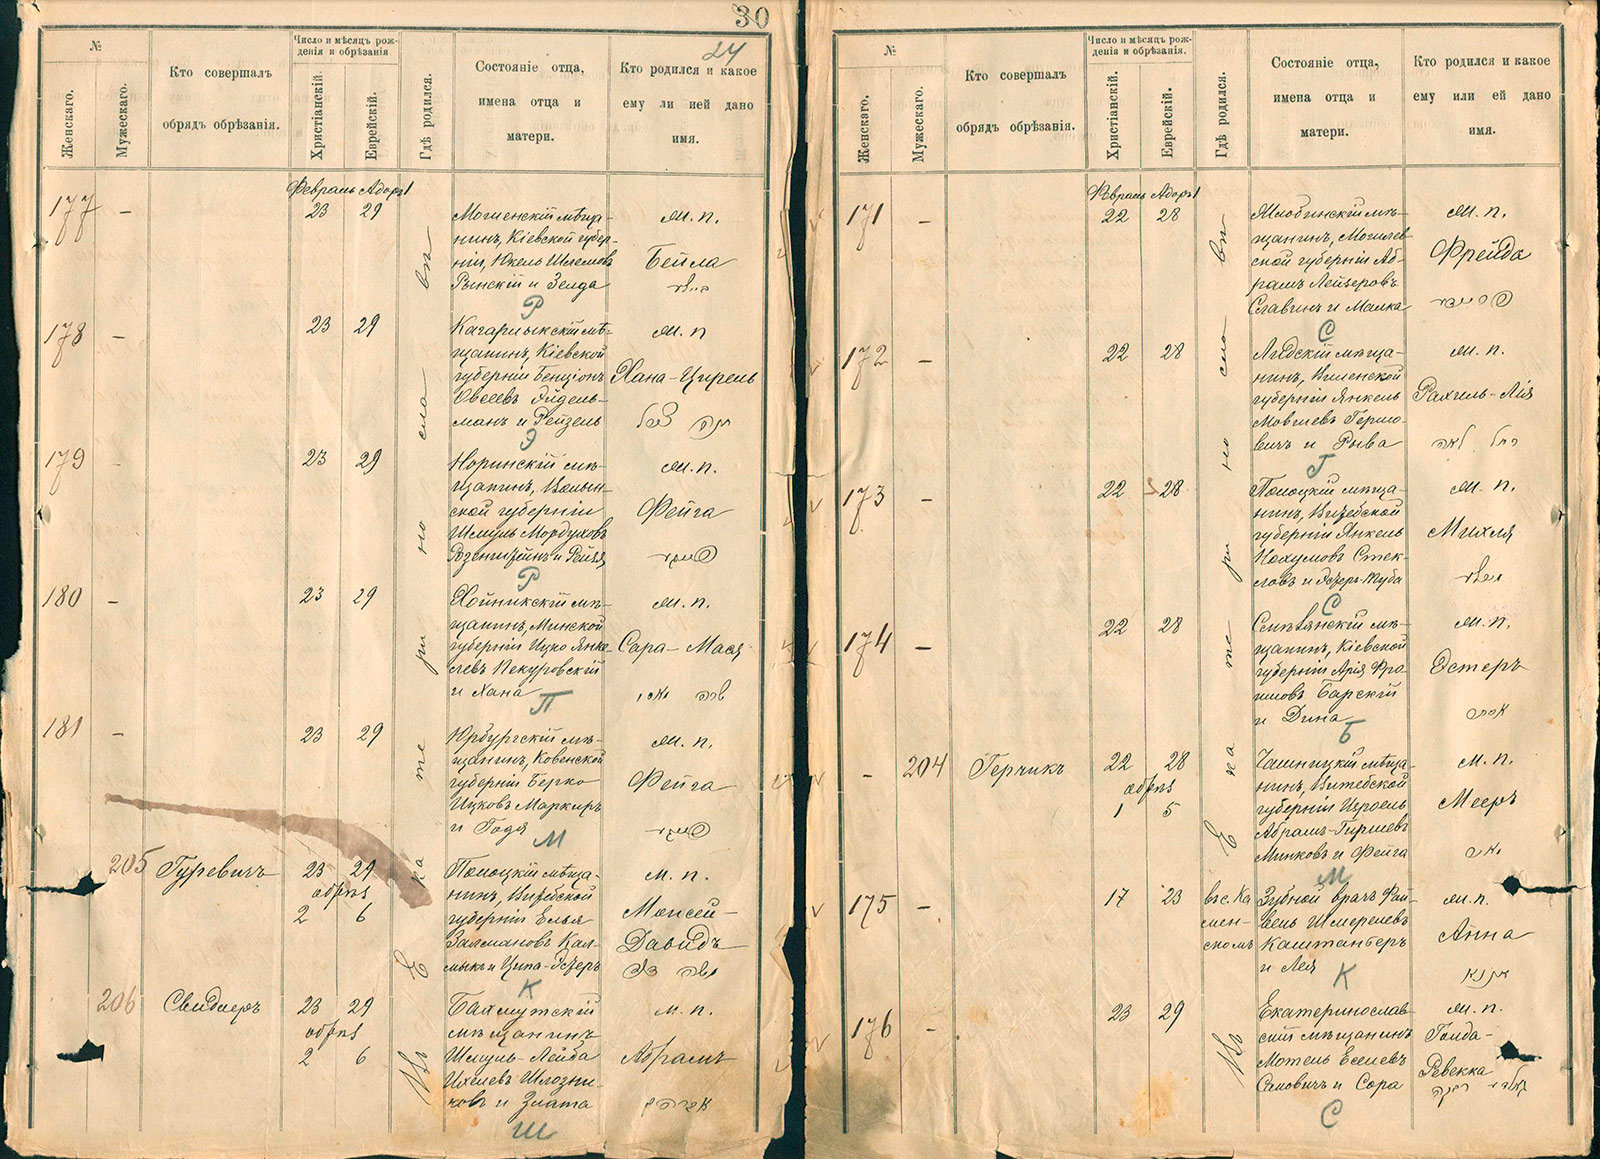 30
24
№
Женскаго.
Мужескаго.
Кто совершалъ
обрядъ обрѣзанія.
Число и мѣсяцъ рож-
денія и обрѣзанія
Христіанскій.
Еврейскій.
Гдѣ родился.
Состояніе отца,
имена отца и
матери.
Кто родился и какое
ему ли ией дано
имя.
Февраль Адоръ 1
177 - 23 29
Могиенскій мѣща-
нинъ, Кіевской губер-
ніи, Юкель Шлемовъ
Рынскій и Зелда
м. п.
Бейла
ביילע
Р
178 - 23 29
Кагарлыкскій мѣ-
щанинъ, Кіевской
губерніи Бенціонъ
Овсеевъ Эйдель-
манъ и Рейзель
м. п
Хана-Цирель
חנה צירל
Э
179 - 23 29
Норинскій мѣ-
щанинъ, Волын-
ской губерніи
Шмуль Мордуховъ
Розенштейнъ и Рейзя
м. п.
Фейга
פייגע
Р
180 - 23 29
Хойникскій мѣ-
щанинъ, Минской
губерніи Ицко Янке-
левъ Пекуровскій
и Хана
м. п.
Сара-Мася
שרה מאסי
П
181 - 23 29
Юрбургскій мѣ-
щанинъ, Ковенской
губерніи Берко
Ицковъ Маркиръ
и Годя
м. п.
Фейга
פייגע
М
205 Гуревичъ 23 29
обрѣз
2 6
Полоцкій мѣща-
нинъ, Витебской
губерніи Елья
Залмановъ Кал-
мыкъ и Ципа-Эстеръ
м. п.
Моисей-
Давидъ
משה דוד
К
206 Свидлеръ 23 29
обрѣз
2 6
Бахмутскій
мѣщанинъ
Шмуль-Лейба
Ихелевъ Шлозни-
ковъ и Злата
м. п.
Абрамъ
אברהם
Ш
Въ Екатеринославѣ
№
Женскаго.
Мужескаго.
Кто совершалъ
обрядъ обрѣзанія.
Число и мѣсяцъ рож-
денія и обрѣзанія.
Христіанскій.
Еврейскій.
Гдѣ родился.
Состояніе отца,
имена отца и
матери.
Кто родился и какое
ему или ей дано
имя.
Февраль Адоръ 1
171 - 22 28
Жлобинскій мѣ-
щанинъ, Могилев
ской губерніи Аб-
рамъ Лейзеровъ
Славинъ и Малка
м. п.
Фрейда
פריידע
С
172 - 22 28
Лидскій мѣща-
нинъ, Виленской
губерніи Янкель
Мовшевъ Гершо-
вичъ и Рыва
м. п.
Рахиль-Лія
רחל לאה
Г
173 - 22 28
Полоцкій мѣща-
нинъ, Витебской
губерніи Янкель
Нохумовъ Стек-
ловъ и Эстеръ-Туба
м. п.
Михля
מיכלע
С
174 - 22 28
Смѣлянскій мѣ-
щанинъ, Кіевской
губерніи Арія Фра-
имовъ Барскій
и Дина
м. п.
Эстеръ
אסתר
Б
- 204 Герчикъ 22 28
обрѣз
1 5
Чашницкій мѣща-
нинъ, Витебской
губерніи Израель
Абрамъ-Гиршевъ
Минковъ и Фейга
м. п.
Мееръ
מאיר
М
175 - 17 23
въ с. Ка
мен-
скомъ
Зубной врачъ Фай-
вель Шмерелевъ
Каштанберъ
и Лея
м. п.
Анна
אננא
К
176 - 23 29
Екатеринослав-
скій мѣщанинъ
Мотель Еселевъ
Самовичъ и Сора
м. п.
Голда-
Ревекка
גאלדע רבקה
С
Въ Екатеринославѣ